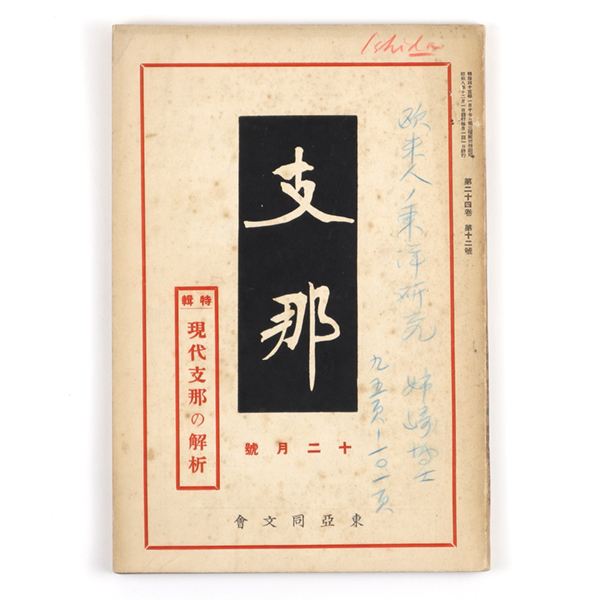 Ishida
歐米人ノ東洋研究 姉崎博士
九五頁－一〇一頁
第二十四卷 第十二號
支那
特輯
現代支那の解析
十二月號
東亞同文會